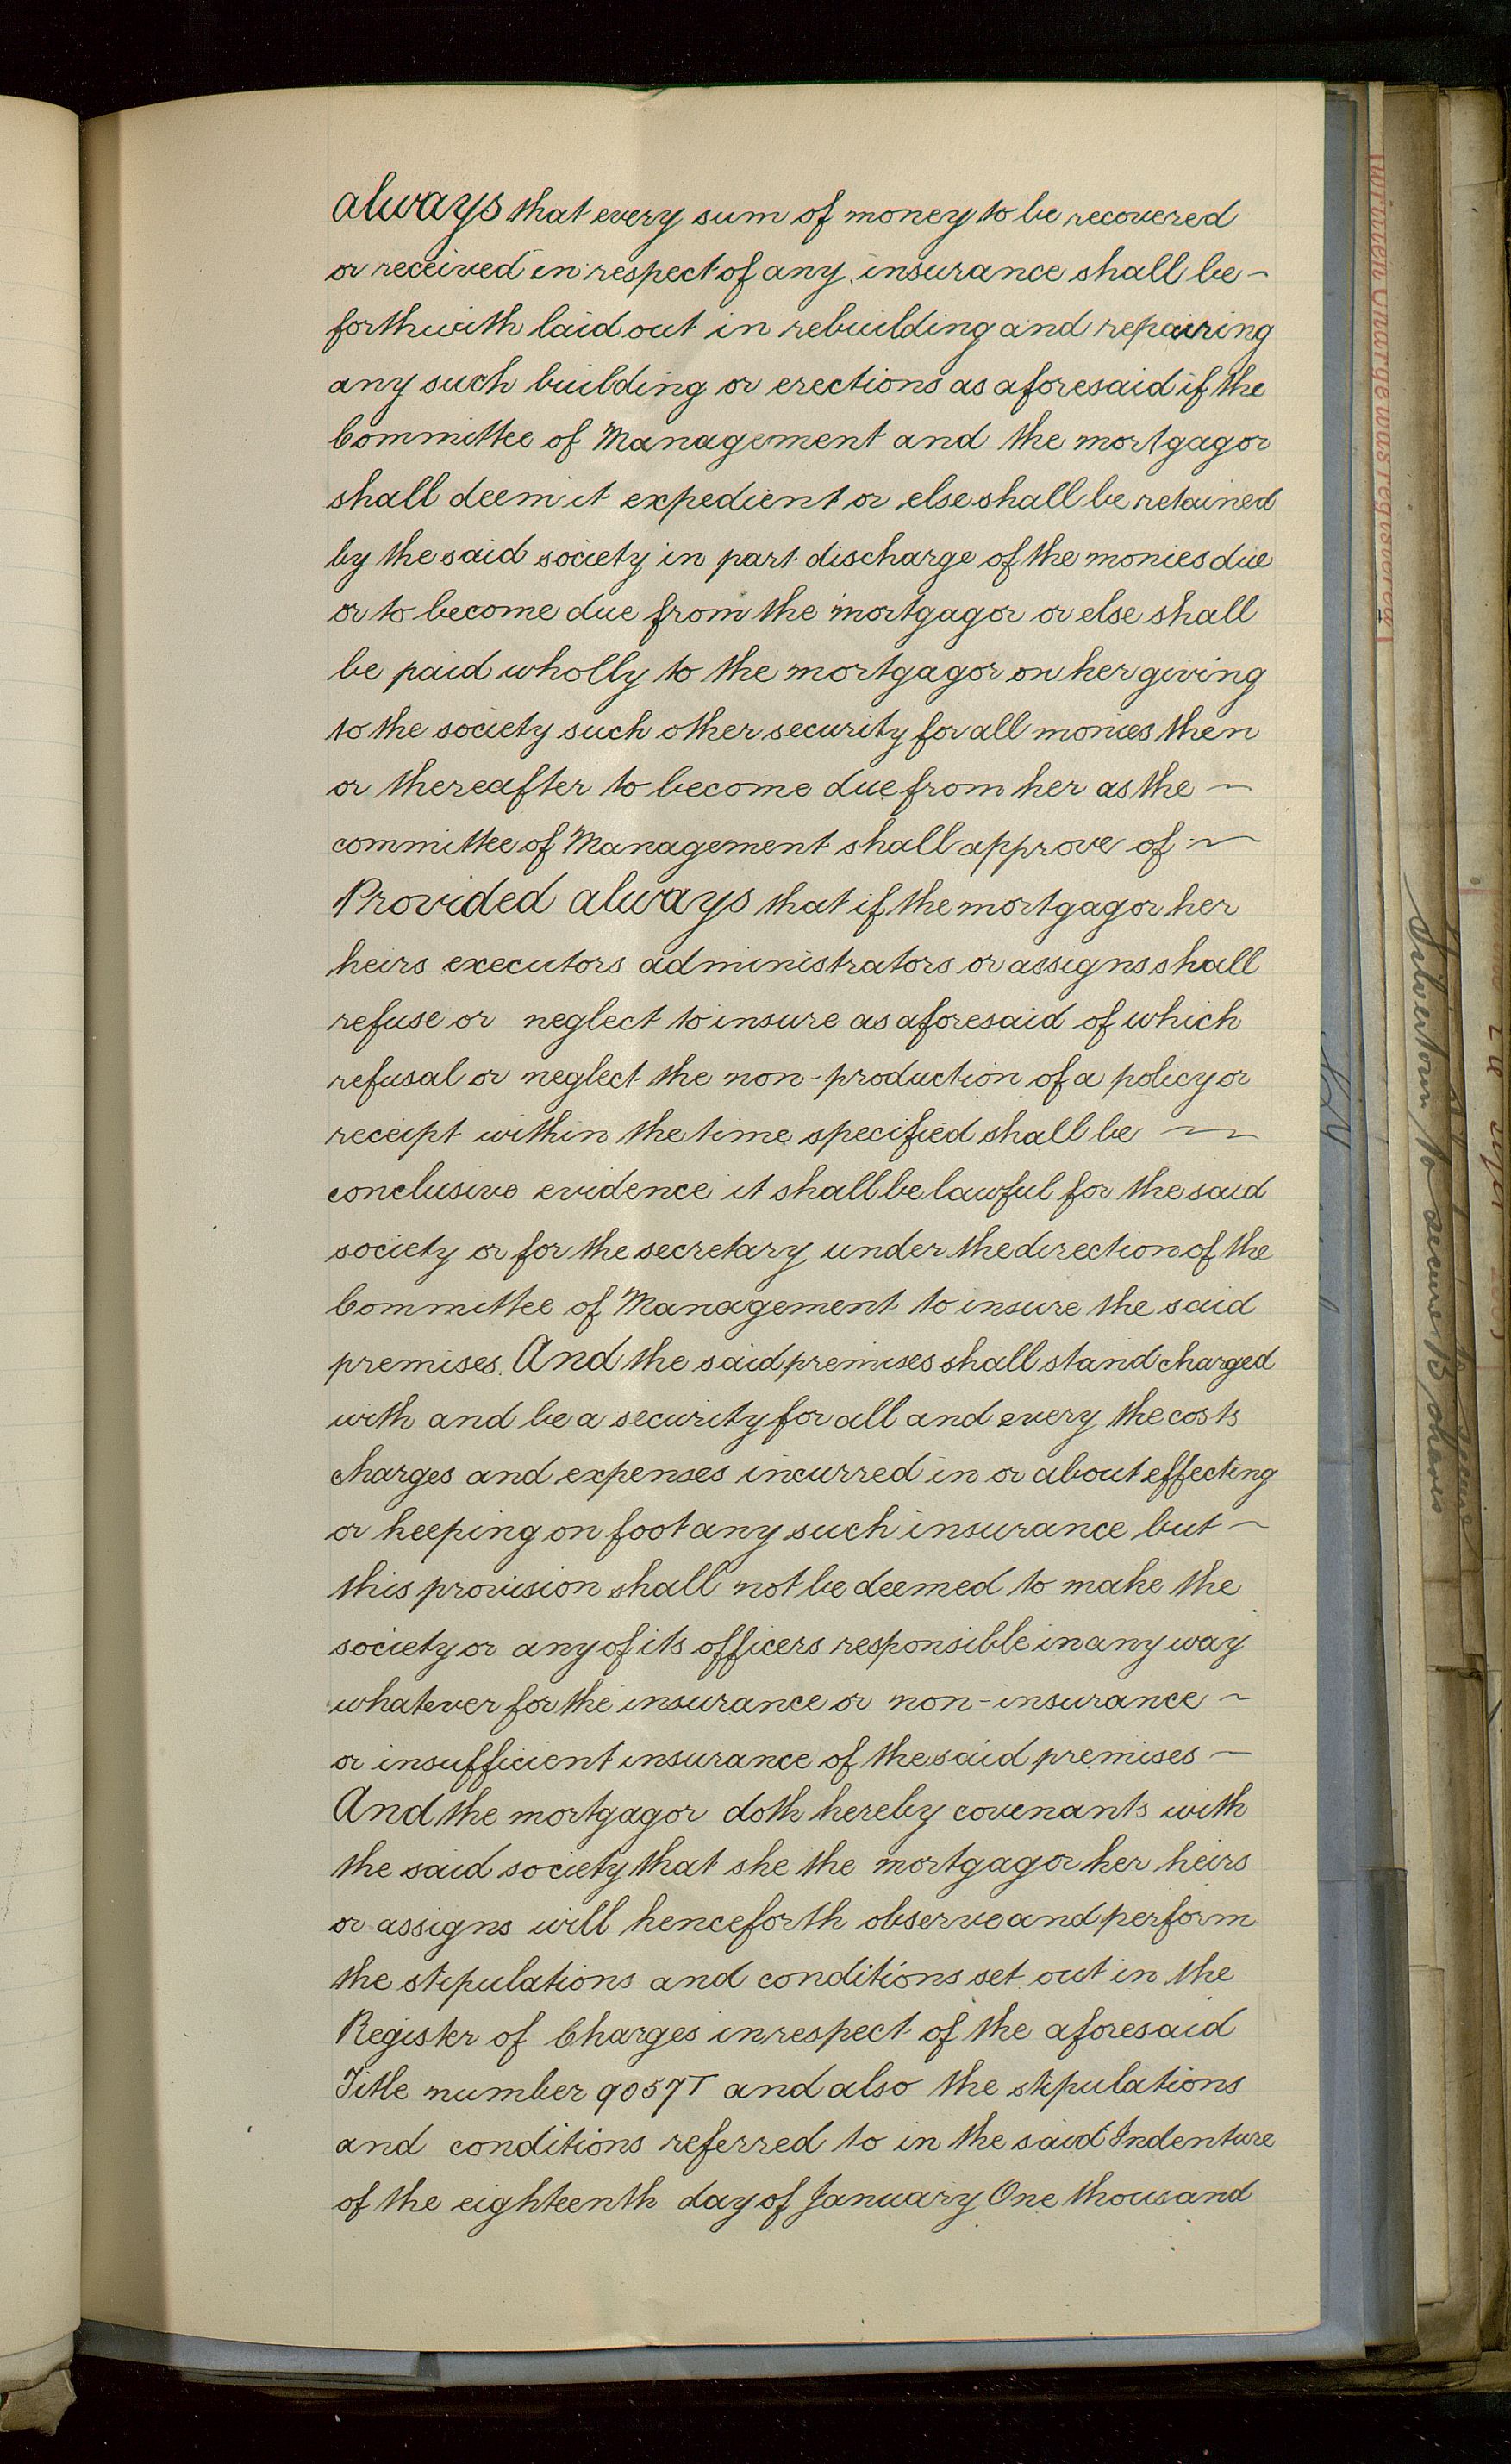 always that every sum of money to be recovered
or received in respect of any insurance shall be -
forthwith laid out in rebuilding and repairing
any such building or erections as aforesaid if the
Committee of Management and the mortgagor
shall deem it expedient or else shall be retained
by the said society in part discharge of the monies due
or to become due from the mortgagor or else shall
be paid wholly to the mortgagor on her giving
to the society such other security for all monies then
or thereafter to become due from her as the ~
committee of Management shall approve of ~
Provided always that if the mortgagor her
heirs executors administrators or assigns shall
refuse or neglect to insure as aforesaid of which
refusal or neglect the non-production of a policy or
receipt within the time specified shall be ~
conclusive evidence it shall be lawful for the said
society or for the secretary under the direction of the
Committee of Management to insure the said
premises. And the said premises shall stand charged
with and be a security for all and every the costs
charges and expenses incurred in or about effecting
or keeping on foot any such insurance but ~
this provision shall not be deemed to make the
society or any of its officers responsible in any way
whatever for the insurance or non-insurance ~
or insufficient insurance of the said premises ~
And the mortgagor doth hereby covenants with
the said society that she the mortgagor her heirs
or assigns will henceforth observe and perform
the stipulations and conditions set out in the
Register of Charges in respect of the aforesaid
Title number 9057T and also the stipulations
and conditions referred to in the said Indenture
of the eighteenth day of January One thousand
written charge was registered]
Silvertown, to secure 13 shares